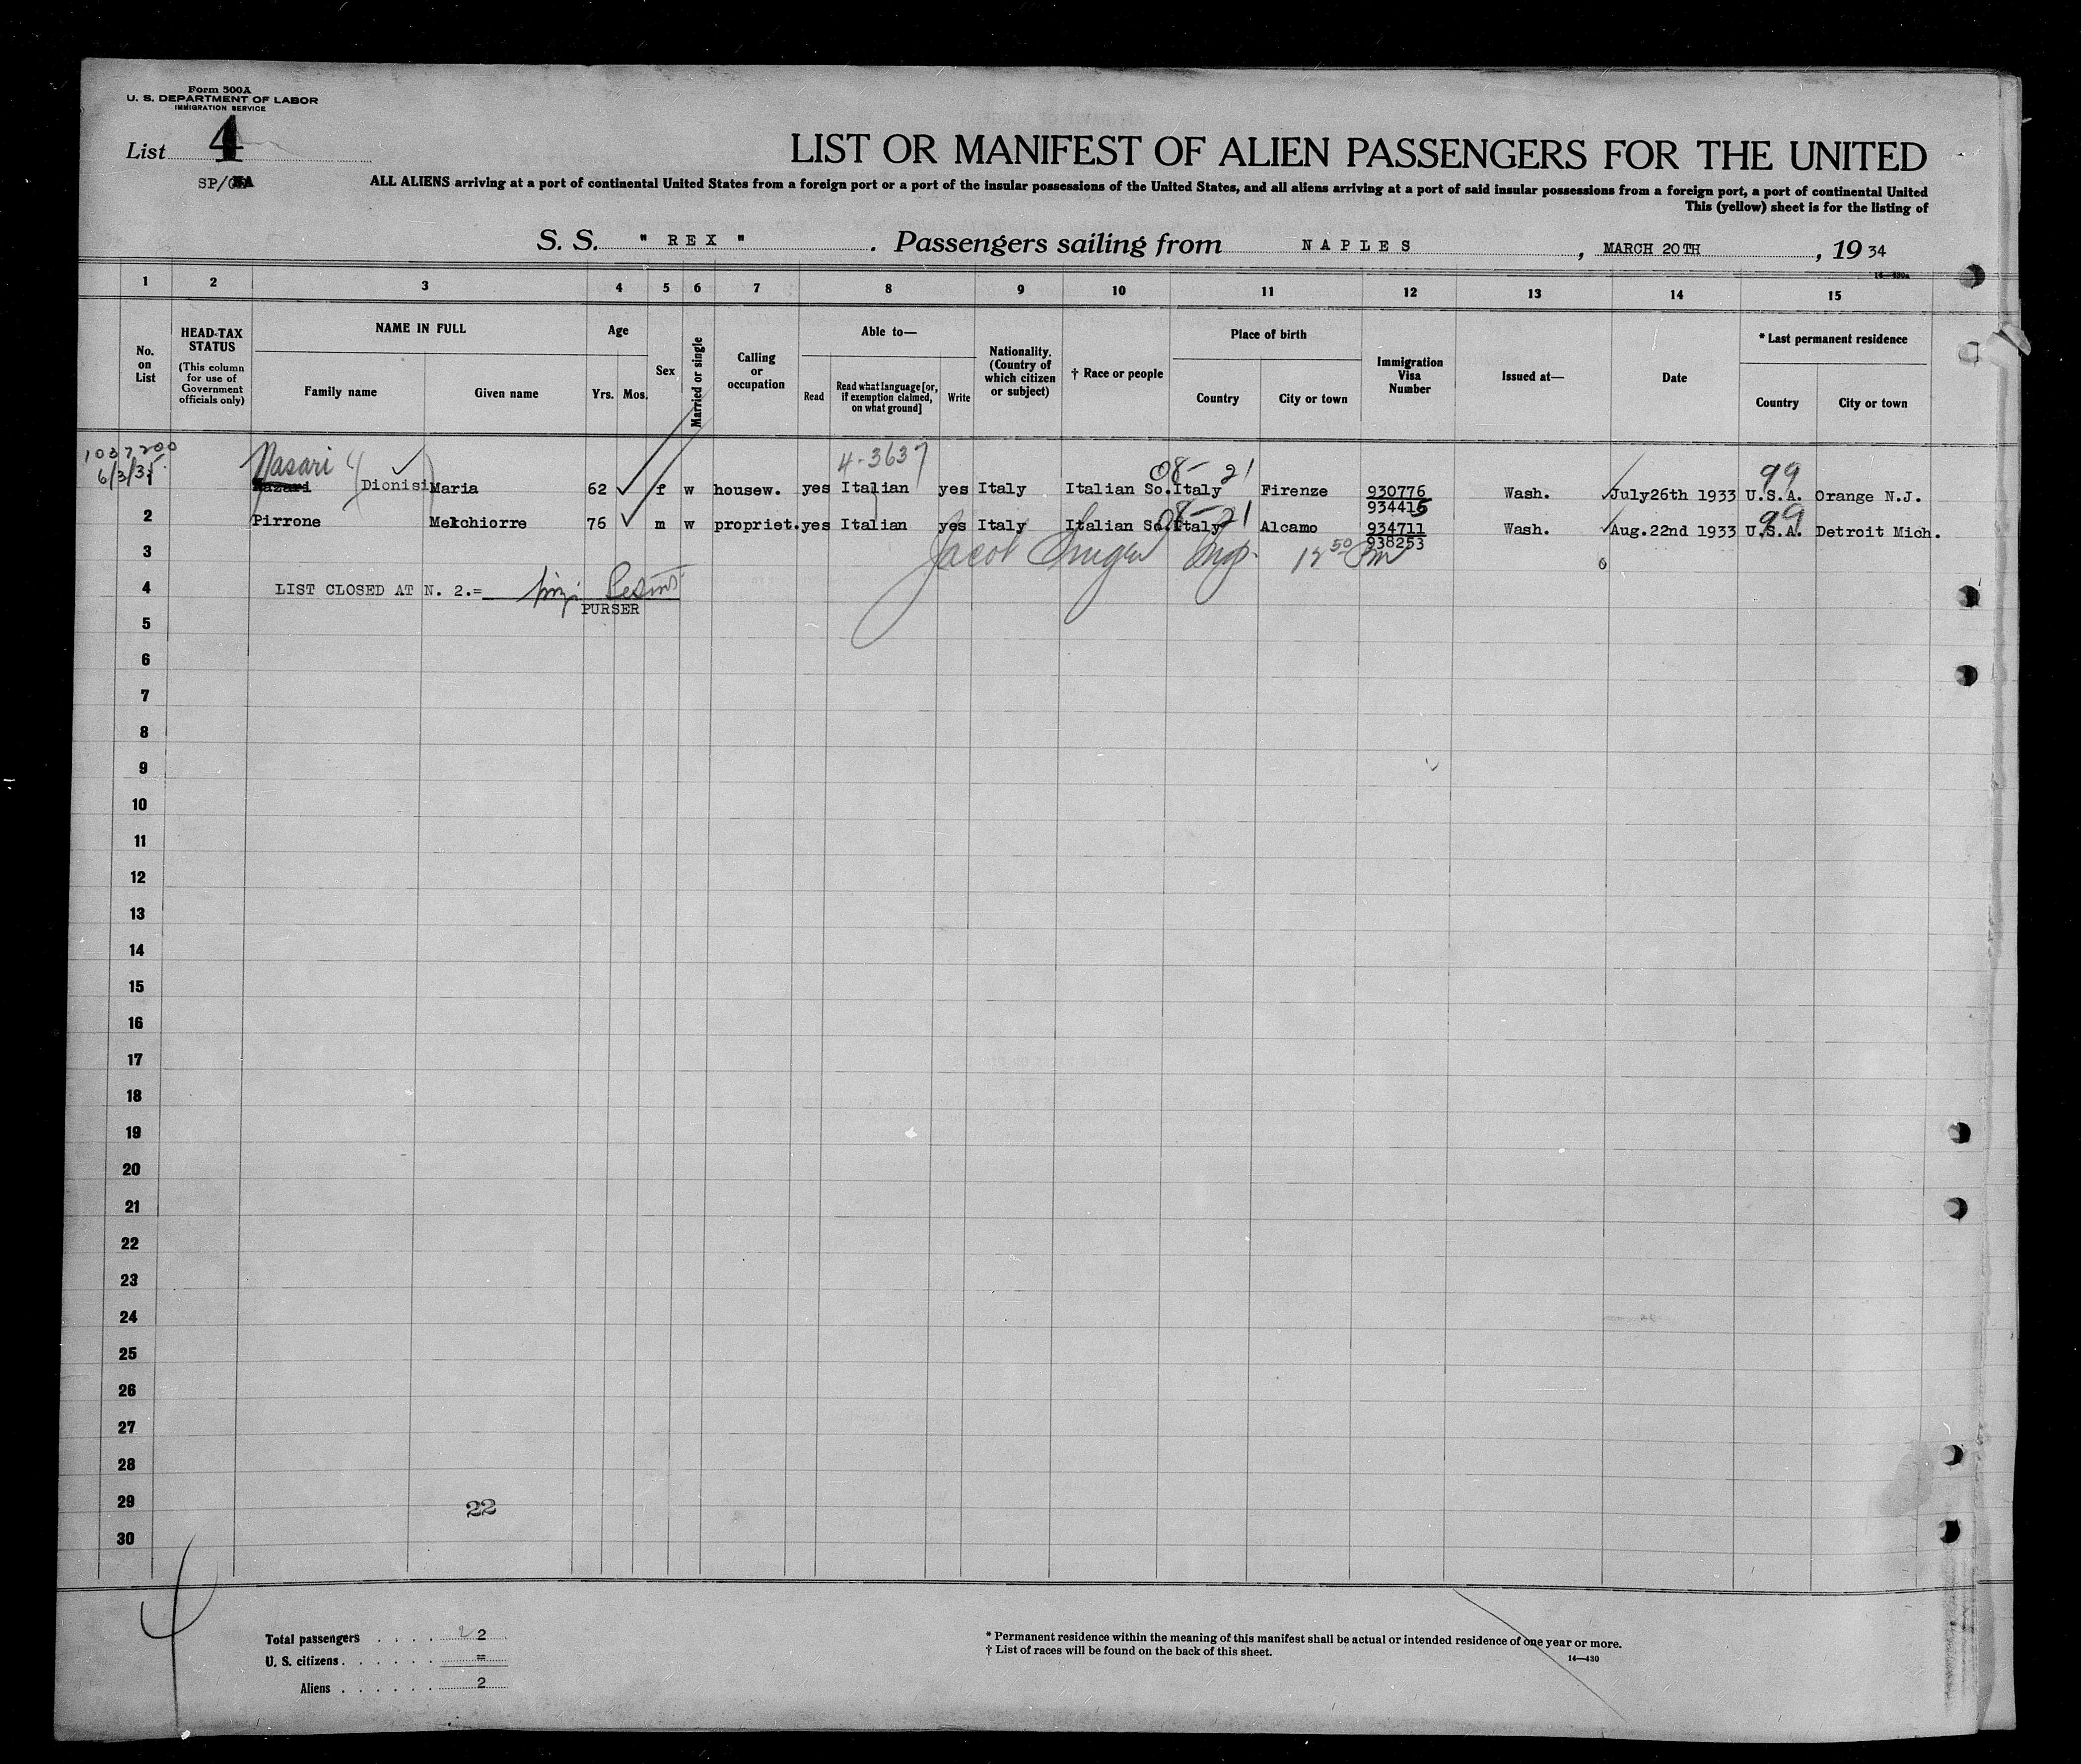 Form 500A
U. S. DEPARTMENT OF LABOR
IMMIGRATION SERVICE
List 4
SP/
LIST OR MANIFEST OF ALIEN PASSENGERS FOR THE UNITED
ALL ALIENS arriving at a port of continental United States from a foreign port or a port of the insular possessions of the United States, and all aliens arriving at a port of said insular possessions from a foreign port, a port of continental United
This (yellow) sheet is for the listing of
S. S. " REX " . Passengers sailing from NAPLES , MARCH 20TH , 19 34
14—430a
1 2 3 4 5 6 7 8 9 10 11 12 13 14 15
No. on List
HEAD-TAX STATUS (This column for use of Government officials only)
NAME IN FULL
Family name Given name
Age
Yrs. Mos.
Sex
Married or single
Calling or occupation
Able to—
Read Read what language [or, if exemption claimed, on what ground] Write
Nationality. (Country of which citizen or subject)
† Race or people
Place of birth
Country City or town
Immigration Visa Number
Issued at—
Date
* Last permanent residence
Country City or town
1037200
6/3/35
Nasari 4-3637 08-21 99
1 Nazari Dionisi Maria 62 f w housew. yes Italian yes Italy Italian So. Italy Firenze 930776 Wash. July26th 1933 U.S.A. Orange N.J.
934415
08-21 99
2 Pirrone Melchiorre 76 m w propriet. yes Italian yes Italy Italian So. Italy Alcamo 934711 Wash. Aug.22nd 1933 U.S.A. Detroit Mich.
938253
3 Jacob Insp. 12 50 Pm
4 LIST CLOSED AT N. 2.=
PURSER
5
6
7
8
9
10
11
12
13
14
15
16
17
18
19
20
21
22
23
24
25
26
27
28
29 22
30
Total passengers . . . . 2 2
U. S. citizens . . . . . . =
Aliens . . . . . . 2
* Permanent residence within the meaning of this manifest shall be actual or intended residence of one year or more.
† List of races will be found on the back of this sheet.
14—430